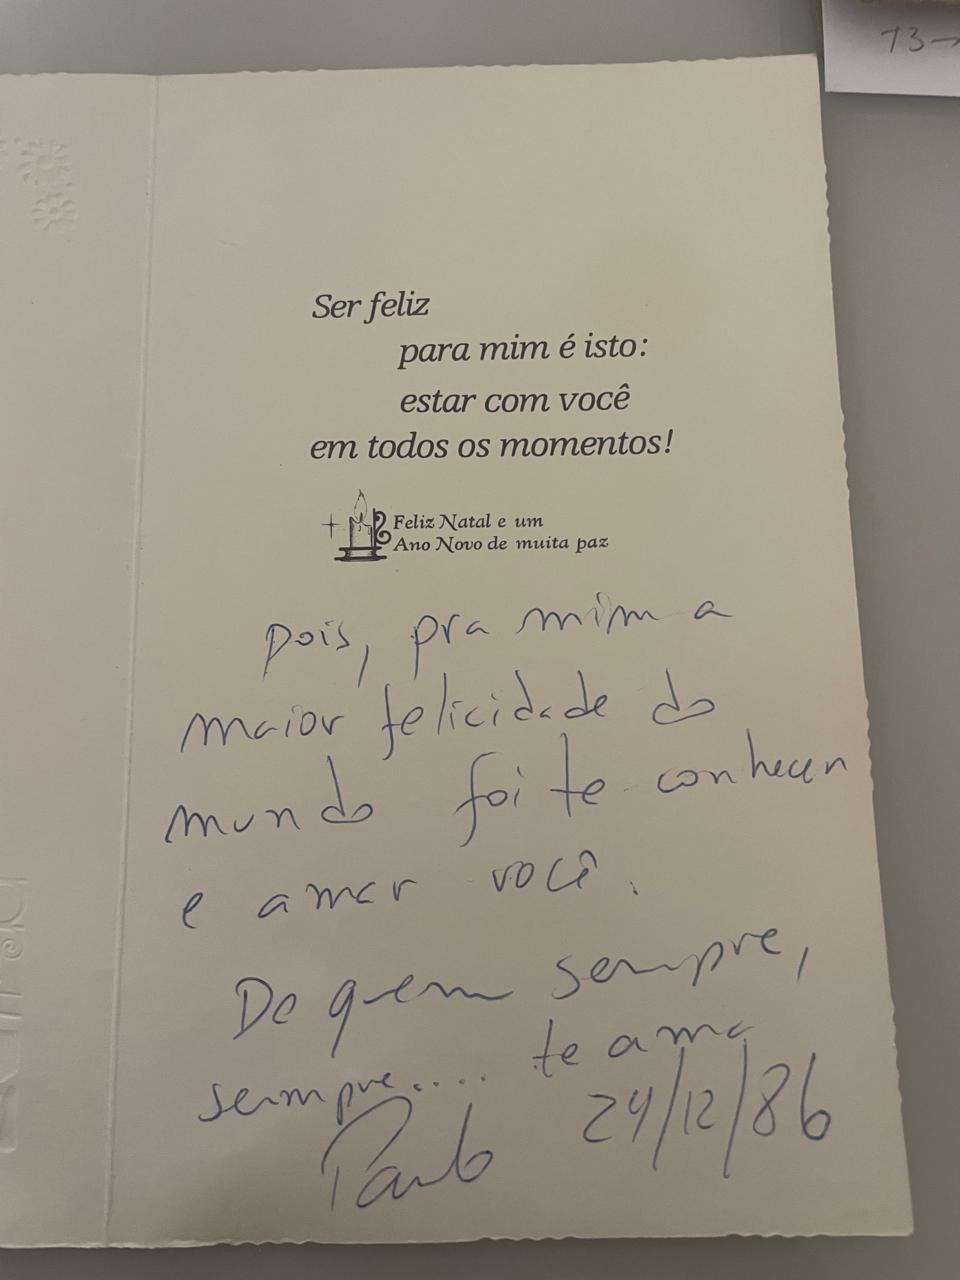 73→
Ser feliz
para mim é isto:
estar com você
em todos os momentos!
Feliz Natal e um
Ano Novo de muita paz
Pois, pra mim a
maior felicidade do
mundo foi te conhecer
e amar você.
De quem sempre,
sempre.... te ama
Paulo 24/12/86